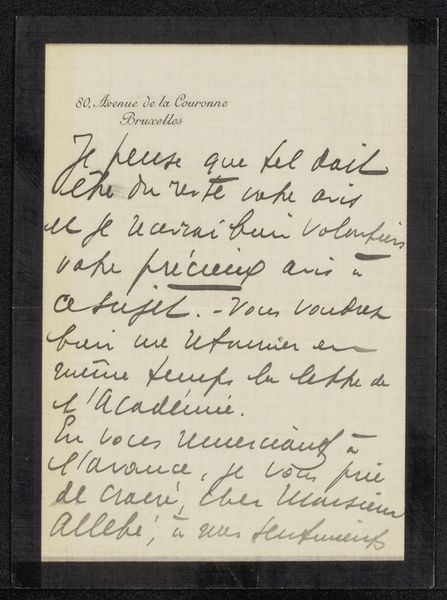 80, Avenue de la Couronne
Bruxelles
Je pense que tel doit
être du reste votre avis
et je recevrai bien volontiers
votre précieux avis à
ce sujet. - Vous voudrez
bien me retourner en
même temps la lettre de
l'Académie.
En vous remerciant à
l'avance, je vous prie
de croire, cher Monsieur
Allebé, à mes sentiments